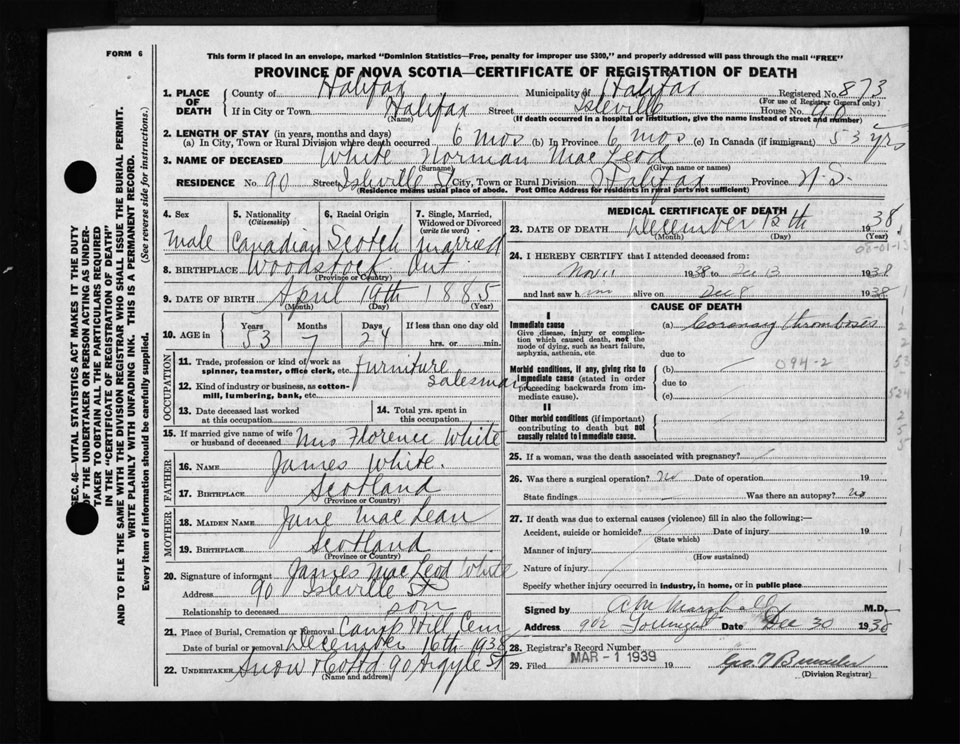 FORM 6
This form if placed in an envelope, marked "Dominion Statistics—Free, penalty for improper use $300," and properly addressed will pass through the mail "FREE"
PROVINCE OF NOVA SCOTIA—CERTIFICATE OF REGISTRATION OF DEATH
SEC. 46—VITAL STATISTICS ACT MAKES IT THE DUTY
OF THE UNDERTAKER OR PERSON ACTING AS UNDER-
TAKER TO OBTAIN ALL THE PARTICULARS REQUIRED
IN THE "CERTIFICATE OF REGISTRATION OF DEATH"
AND TO FILE THE SAME WITH THE DIVISION REGISTRAR WHO SHALL ISSUE THE BURIAL PERMIT.
WRITE PLAINLY WITH UNFADING INK. THIS IS A PERMANENT RECORD.
Every item of information should be carefully supplied. (See reverse side for instructions.)
1. PLACE OF DEATH County of Halifax Municipality of Halifax Registered No. 873
(For use of Registrar General only)
If in City or Town Halifax Street Isleville House No. 90
(Name) (If death occurred in a hospital or institution, give the name instead of street and number)
2. LENGTH OF STAY (in years, months and days)
(a) In City, Town or Rural Division where death occurred 6 mos (b) In Province 6 mos (c) In Canada (if immigrant) 53 yrs
3. NAME OF DECEASED White Norman MacLeod
(Surname) (Given name or names)
RESIDENCE No. 90 Street Isleville St City, Town or Rural Division Halifax Province N.S.
(Residence means usual place of abode. Post Office Address for residents in rural parts not sufficient)
4. Sex Male
5. Nationality (Citizenship) Canadian
6. Racial Origin Scotch
7. Single, Married, Widowed or Divorced (write the word) Married
8. BIRTHPLACE Woodstock Ont.
(Province or Country)
9. DATE OF BIRTH April 19th 1885
(Month) (Day) (Year)
10. AGE in Years Months Days If less than one day old
53 7 24 hrs. or min.
OCCUPATION
11. Trade, profession or kind of work as spinner, teamster, office clerk, etc. Furniture Salesman
12. Kind of industry or business, as cotton-mill, lumbering, bank, etc.
13. Date deceased last worked at this occupation
14. Total yrs. spent in this occupation
15. If married give name of wife or husband of deceased Mrs Florence White
FATHER
16. NAME James White.
17. BIRTHPLACE Scotland
(Province or Country)
MOTHER
18. MAIDEN NAME Jane MacLean
19. BIRTHPLACE Scotland
(Province or Country)
20. Signature of informant James MacLeod White
Address 90 Isleville St
Relationship to deceased son
21. Place of Burial, Cremation or Removal Camp Hill Cem
Date of burial or removal December 16th 1938
22. UNDERTAKER Snow & Co Ltd 90 Argyle St
(Name and address)
MEDICAL CERTIFICATE OF DEATH
23. DATE OF DEATH December 13th 1938
(Month) (Day) (Year)
24. I HEREBY CERTIFY that I attended deceased from:
Nov 11 1938 to Dec 13 1938
and last saw him alive on Dec 8 1938
CAUSE OF DEATH
I
Immediate cause
Give disease, injury or complication which caused death, not the mode of dying, such as heart failure, asphyxia, asthenia, etc
(a) Coronary thrombosis
due to
Morbid conditions, if any, giving rise to immediate cause (stated in order proceeding backwards from immediate cause).
(b) 094-2
due to
(c)
II
Other morbid conditions (if important) contributing to death but not causally related to immediate cause.
25. If a woman, was the death associated with pregnancy?
26. Was there a surgical operation? No Date of operation 19
State findings Was there an autopsy? No
27. If death was due to external causes (violence) fill in also the following:—
Accident, suicide or homicide? Date of injury 19
(State which)
Manner of injury
(How sustained)
Nature of injury
Specify whether injury occurred in industry, in home, or in public place
Signed by A M Marshall M.D.
Address Date Dec 30 1938
28. Registrar's Record Number
29. Filed MAR - 1 1939 19
(Division Registrar)